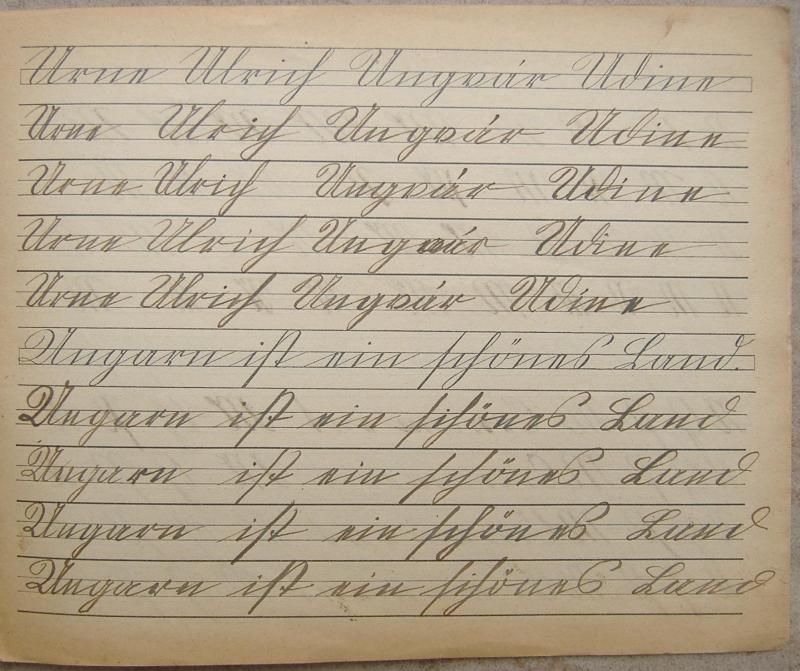 Urne Ulrich Ungvár Udine
Urne Ulrich Ungvár Udine
Urne Ulrich Ungvár Udine
Urne Ulrich Ungvár Udine
Urne Ulrich Ungvár Udine
Ungarn ist ein schönes Land.
Ungarn ist ein schönes Land
Ungarn ist ein schönes Land
Ungarn ist ein schönes Land
Ungarn ist ein schönes Land